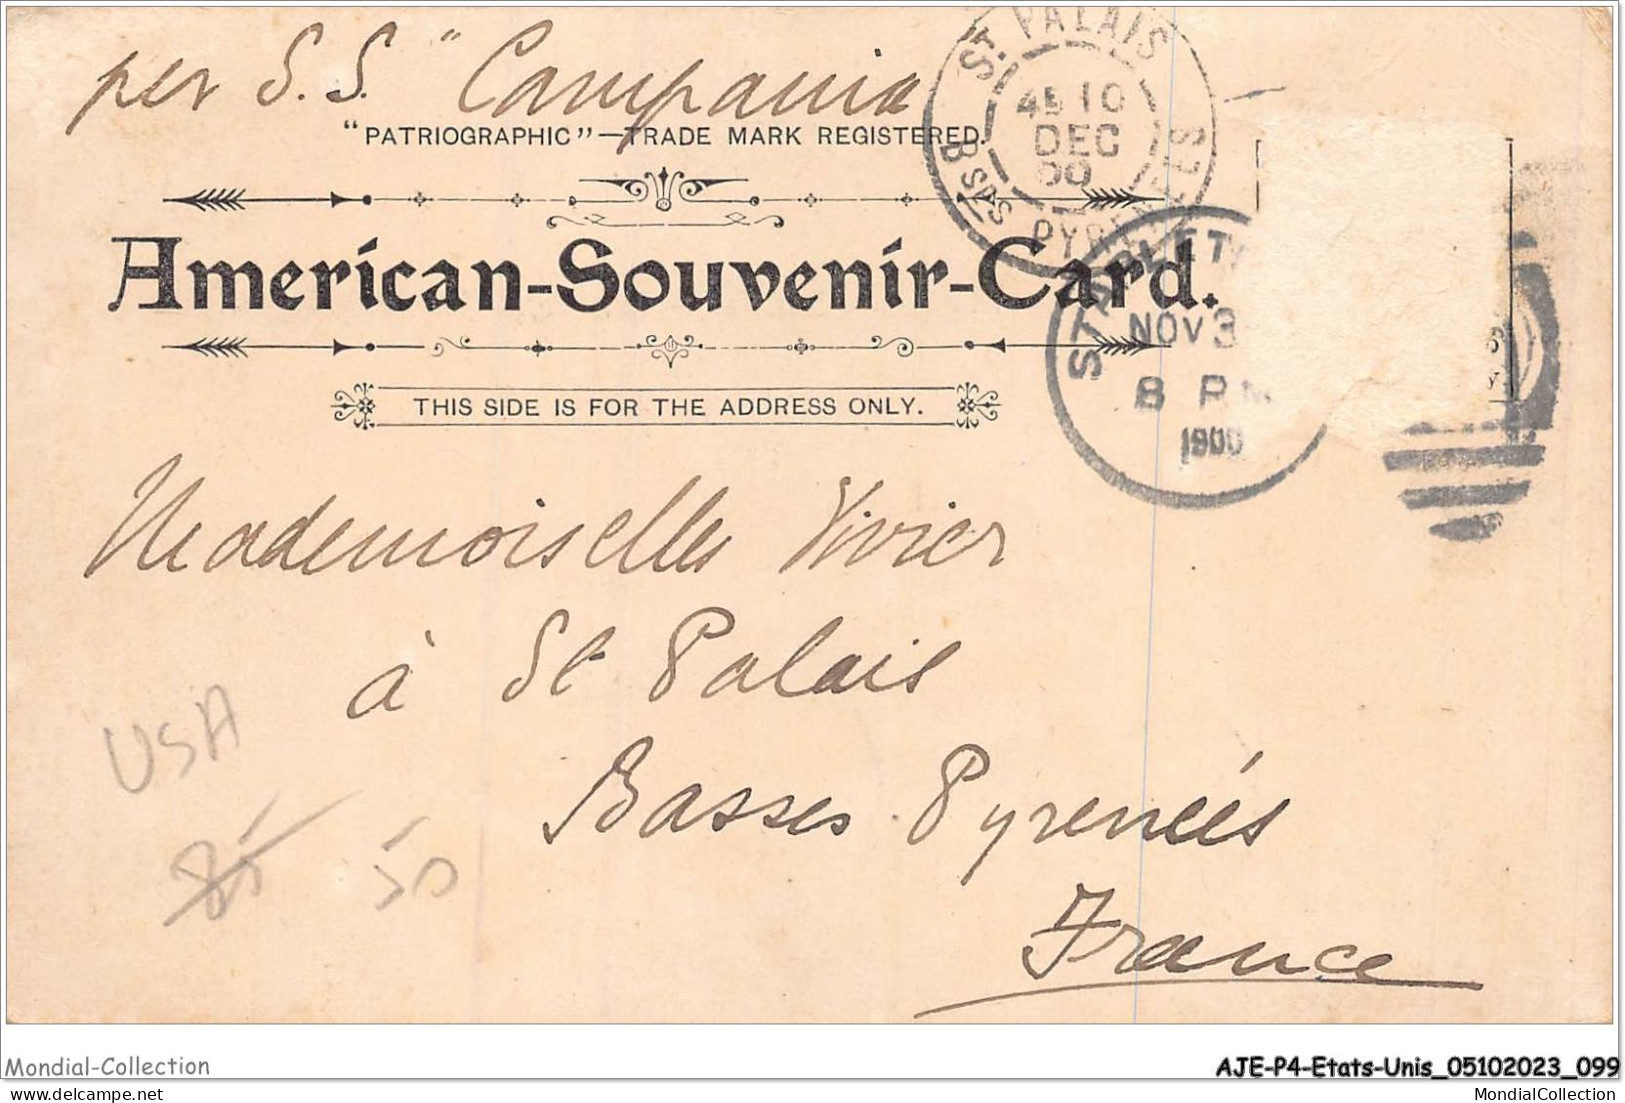 per S.S. "Campania
"PATRIOGRAPHIC"—TRADE MARK REGISTERED.
American-Souvenir-Card.
THIS SIDE IS FOR THE ADDRESS ONLY.
ST PALAIS
4E 10
DEC
00
BSES PYRENEES
NOV 3
8 PM
1900
Mademoiselles Vivier
à St Palais
Basses Pyrenées
France
USA
50
Mondial-Collection
AJE-P4-Etats-Unis_05102023_099
delcampe.net
MondialCollection